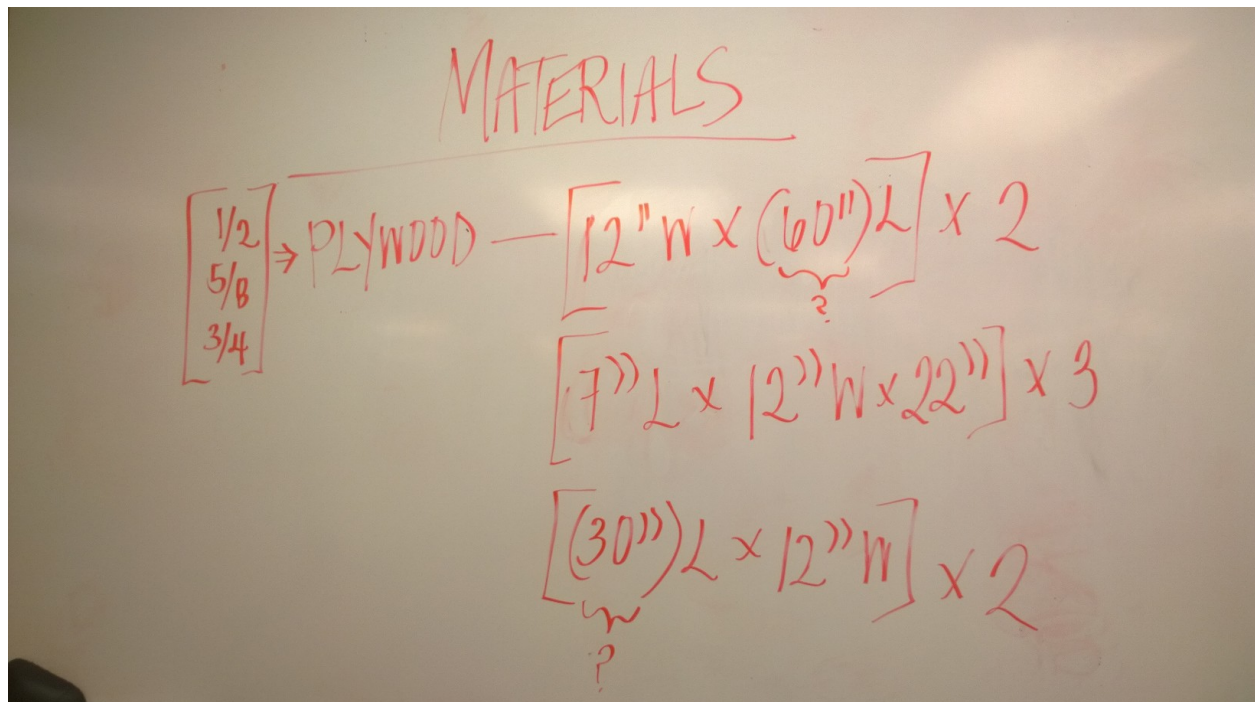 MATERIALS
[1/2 5/8 3/4] → PLYWOOD — [12"W x (60")L] x 2
?
[7"L x 12"W x 22"] x 3
[(30")L x 12"W] x 2
?